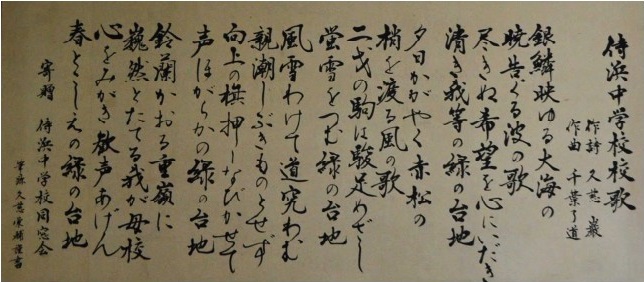 侍浜中学校校歌
作詩 久慈 巌
作曲 千葉了道
銀鱗映ゆる大海の
暁告ぐる波の歌
尽きぬ希望を心にいだき
清き我等の緑の台地
夕日かがやく赤松の
梢を渡る風の歌
二戈の駒は駿足めざし
蛍雪をつむ緑の台地
風雪わけて道究わむ
親潮しぶきものとせず
向上の旗押しなびかせて
声ほがらかの緑の台地
鈴蘭かおる重嶺に
巍然とたてる我が母校
心をみがき歓声あげん
春とこしえの緑の台地
寄贈 侍浜中学校同窓会